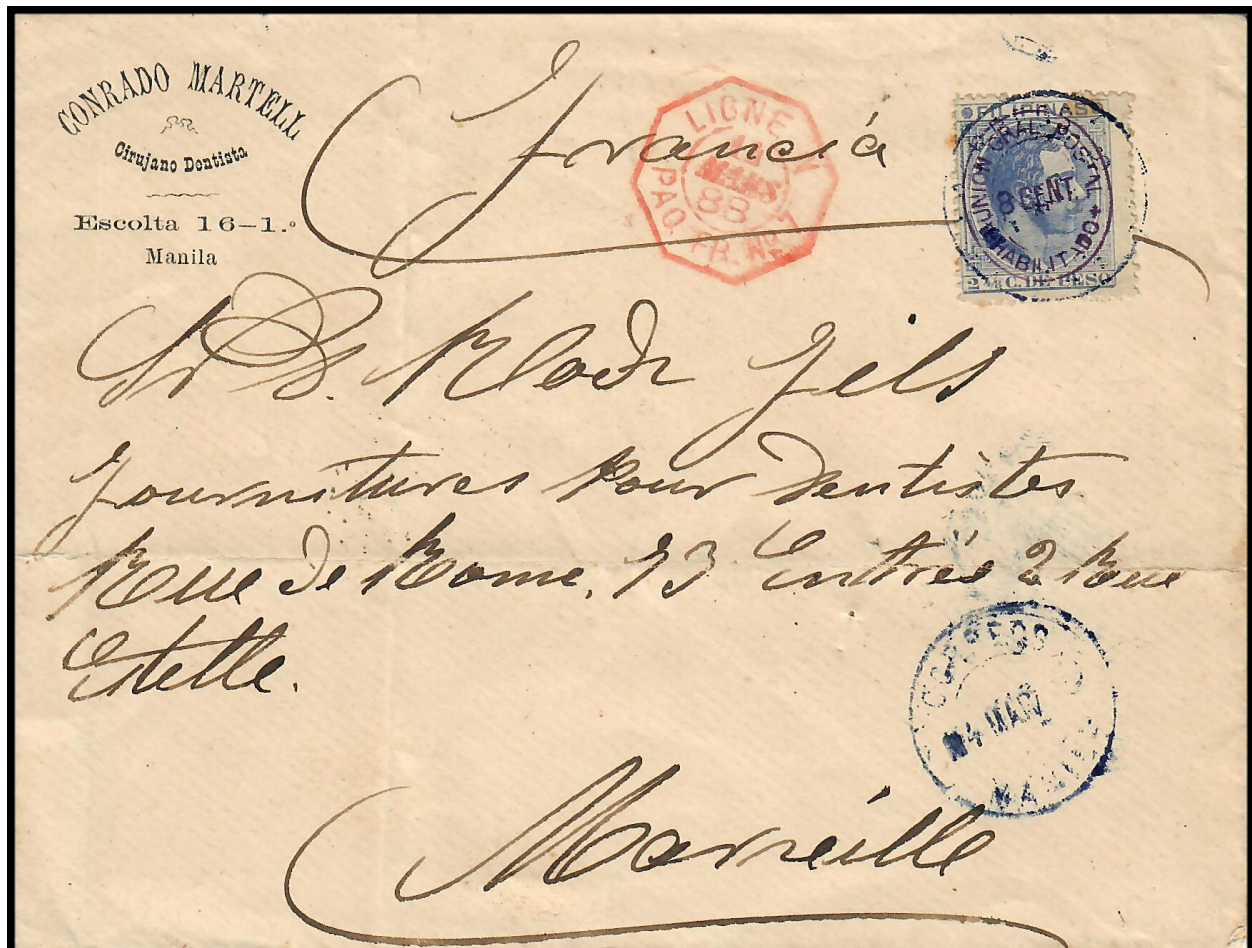 CONRADO MARTELL
Cirujano Dentista
Escolta 16-1.º
Manila
Francia
LIGNE N
MARS
88
PAQ. FR. Nº
FILIPINAS
UNION GRAL. POSTAL
8 CENT.
HABILITADO
2 4/8 C. DE PESO
Sr D. Roch fils
fournitures pour dentistes
Rue de Rome, 93 Entrés 2 Rue
Estelle.
CORREOS
4 MAR
MANILA
Marseille